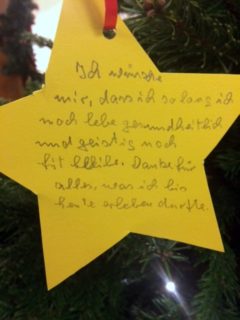 Ich wünsche
mir, dass ich so lang ich
noch lebe gesundheitlich
und geistig noch
fit bleibe. Danke für
alles, was ich bis
heute erleben durfte.